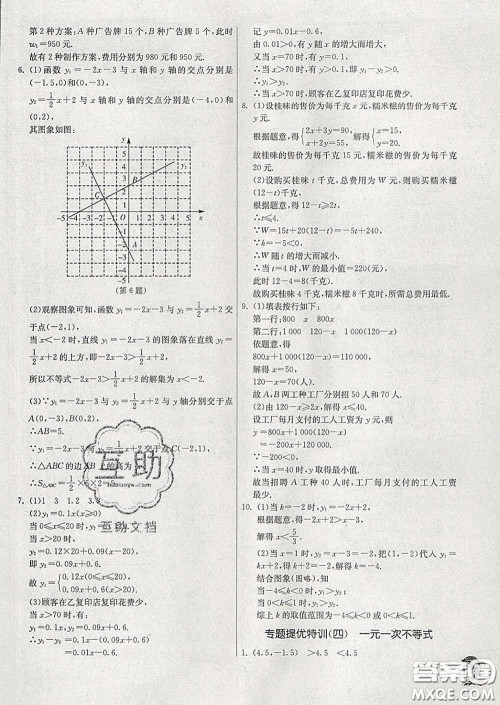 第2种方案：A种广告牌15个，B种广告牌5个，此时
w₁=950元.
故有2种制作方案，费用分别为980元和950元.
6. (1)函数y₁=-2x-3与x轴和y轴的交点分别是
(-1.5,0)和(0,-3)
y₂=1/2x+2与x轴和y轴的交点分别是(-4,0)和
(0,2).
其图象如图：
y
y₁
y₂
C
B
A
x
O
(第6题)
(2)观察图象可知，函数y₁=-2x-3与y₂=1/2x+2交
于点(-2,1)，
当x<-2时，直线y₁=-2x-3的图象落在直线y₂=
1/2x+2的上方，即-2x-3>1/2x+2，
所以不等式-2x-3>1/2x+2的解集为x<-2.
(3)∵y₁=-2x-3与y₂=1/2x+2与y轴分别交于点
A(0,-3)，B(0,2)，
∴AB=5.
∵y₁=-2x-3与y₂=1/2x+2交于点C(-2,1)，
∴△ABC的边AB上的高为2.
∴S△ABC=1/2×5×2=5.
7. (1)1 3 1.2 3.3
(2)y₁=0.1x(x≥0)
当0≤x≤20时，y₂=0.12x，
当x>20时，
y₂=0.12×20+0.09(x-20)，
即y₂=0.09x+0.6，
故y₂={0.12x(0≤x≤20),
0.09x+0.6(x>20).
(3)顾客在乙复印店复印花费少.
当x>70时，有
y₁=0.1x，y₂=0.09x+0.6，
∴y₁-y₂=0.1x-(0.09x+0.6)
=0.01x-0.6，
记y=0.01x-0.6，
由0.01>0，则y随x的增大而增大，
又当x=70时，有y=0.1.
∴当x>70时，有y>0.1，∴y>0，
∴当x>70时，顾客在乙复印店复印花费少.
8. (1)设桂味的售价为每千克x元，糯米糍的售价为每
千克y元.
根据题意，得{2x+3y=90, 解得{x=15,
x+2y=55. y=20.
故桂味的售价为每千克15元，糯米糍的售价为每千
克20元.
(2)设购买桂味t千克，总费用为W元，则购买糯米糍
(12-t)千克，
根据题意，得12-t≥2t，
∴t≤4.
∵W=15t+20(12-t)=-5t+240，
∵k=-5<0，
∴W随t的增大而减小.
∴当t=4时，W的最小值=220(元)，此时
12-4=8(千克).
故购买桂味4千克，糯米糍8千克时，总费用最低.
9. (1)填表按行如下：
第一行：800 x 800x
第二行：1 000 120-x 1 000(120-x)
依题意，得
800x+1 000(120-x)=110 000.
解得x=50.
则120-x=70.
故A，B两工种工人分别招50人和70人.
(2)由(120-x)≥2x，解得x≤40.
设工厂每月支付的工人工资为y元，则
y=800x+1 000(120-x)
=-200x+120 000.
∵-200<0，
∴y随x的增大而减小.
故当招聘A工种工人40人时，工厂每月支付的工人工
资最少.
10. (1)当k=-2时，-2x+2>x-3.
解得x<5/3.
(2)当x=1时，y=x-3=-2，把(1,-2)代入y₁=
kx+2，得k+2=-2，解得k=-4.
结合图象(图略)，可知
当-4≤k<0时，y₁>y₂；
当0<k≤1时，y₁>y₂.
综上，k的取值范围为-4≤k<0或0<k≤1.
专题提优特训(四) 一元一次不等式
1. (4.5,-1.5) >4.5 <4.5
互助
互助文档
答案圈
MXQE.COM